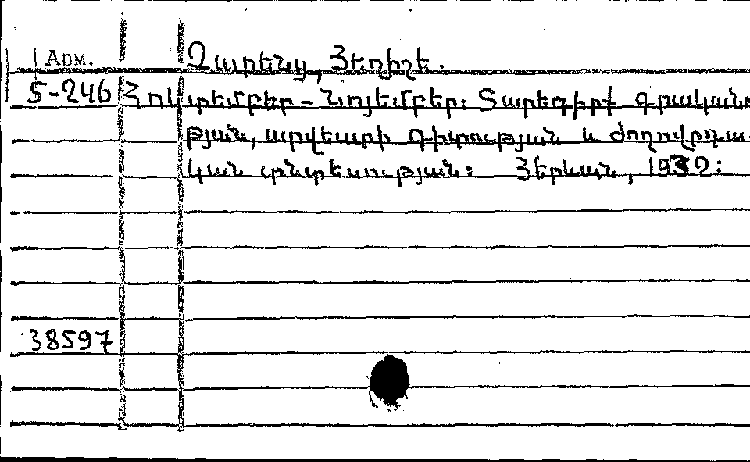 Арм. Չարենց, Յեղիշե.
5-246 Հոկտեմբեր - Նոյեմբեր: Տարեգիրք գրականու
թյան, արվեստի գիտության և ժողովրդա-
կան տնտեսության: Յերևան, 1932:
38597